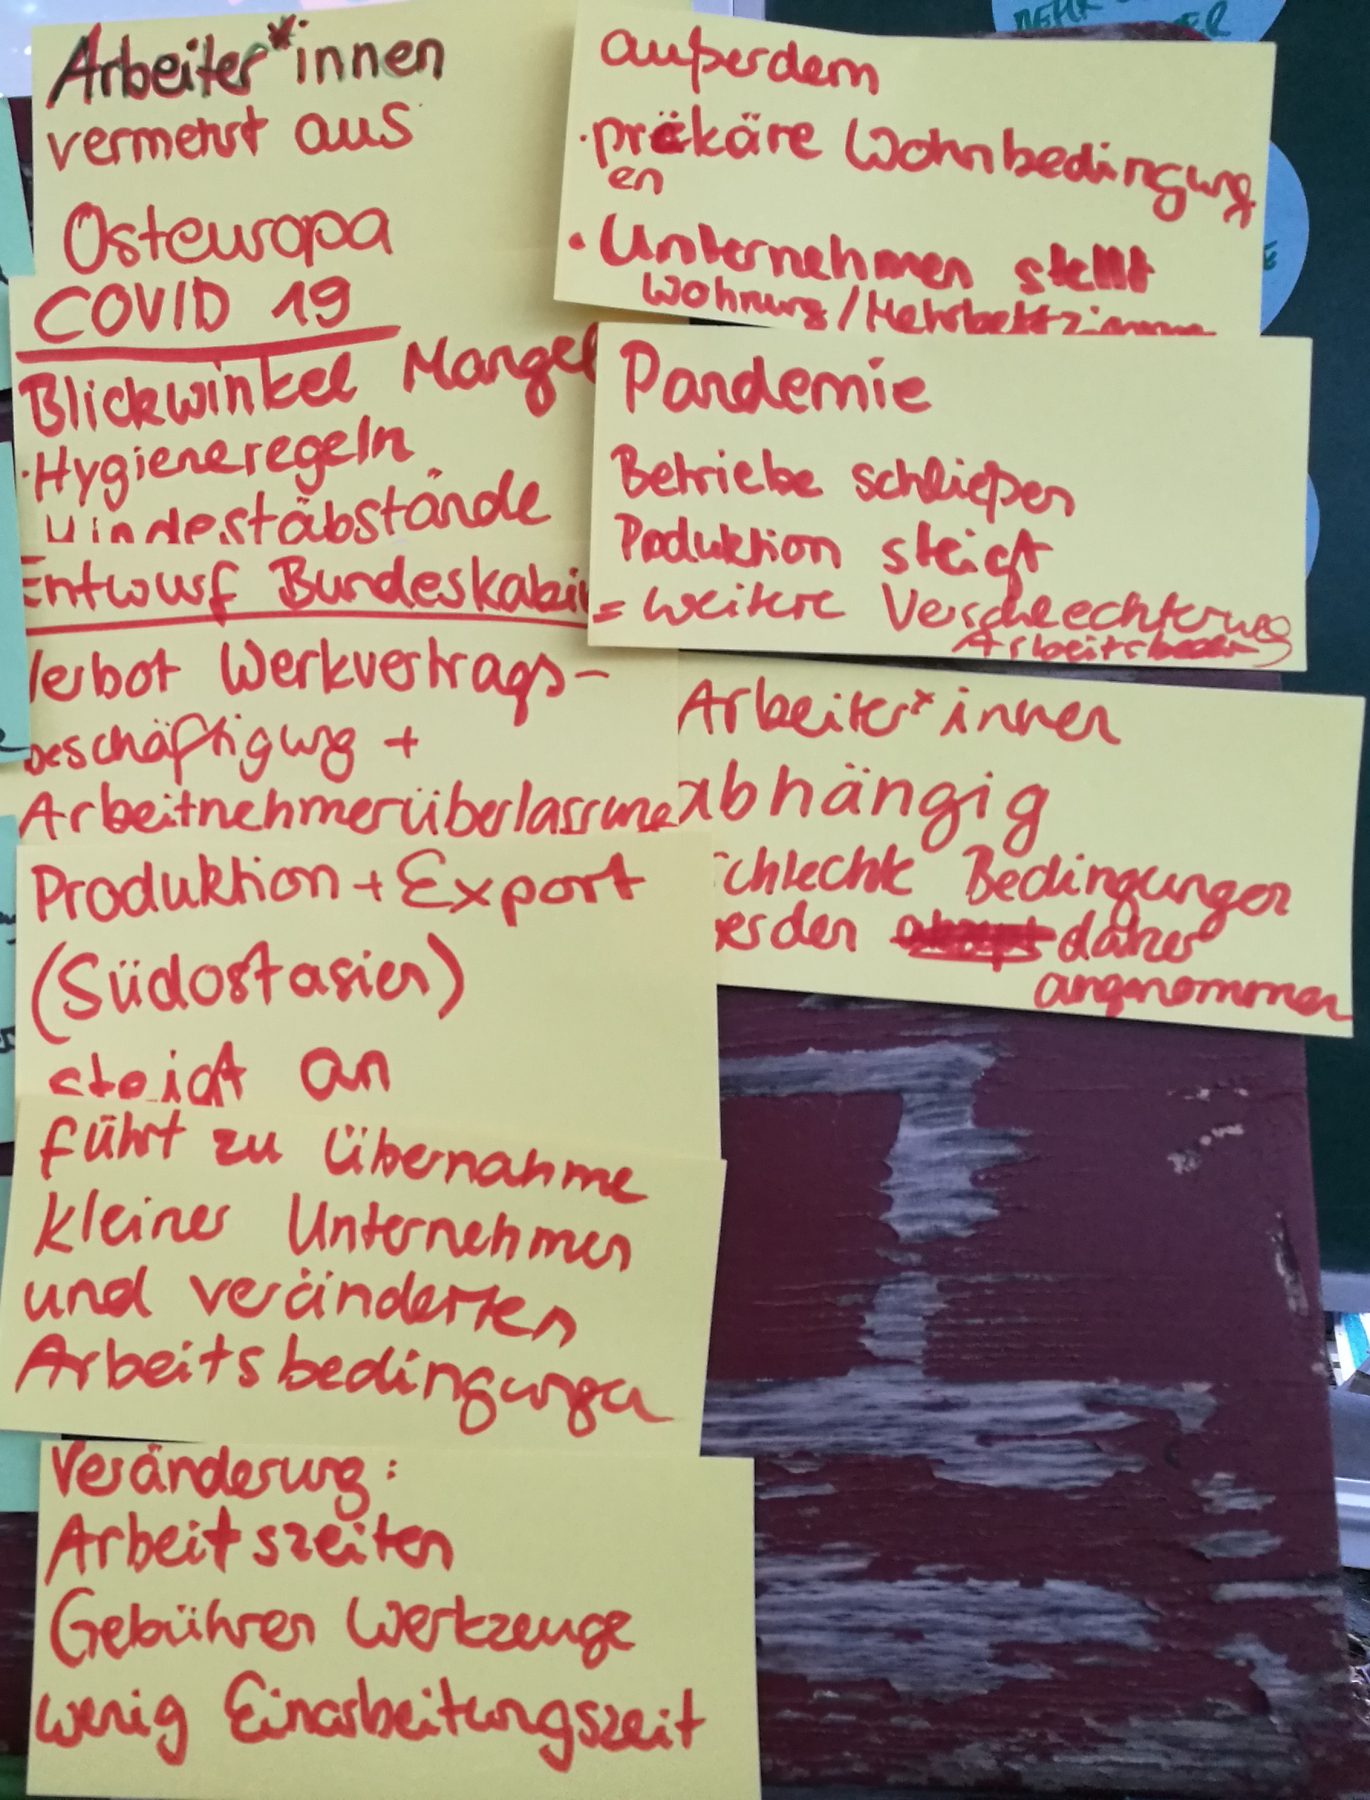 Arbeiter*innen
vermehrt aus
Osteuropa
COVID 19
Blickwinkel Mangel
· Hygieneregeln
Mindestabstände
Entwurf Bundeskabin
Verbot Werkvertrags-
beschäftigung +
Arbeitnehmerüberlassung
Produktion + Export
(Südostasien)
steigt an
führt zu Übernahme
kleiner Unternehmen
und veränderten
Arbeitsbedingungen
Veränderung:
Arbeitszeiten
Gebühren Werkzeuge
wenig Einarbeitungszeit
außerdem
· präkäre Wohnbedingung
en
· Unternehmen stellt
Wohnung/Mehrbettzimmer
Pandemie
Betriebe schließen
Produktion steigt
= weitere Verschlechterung
Arbeitsbeding
Arbeiter*innen
abhängig
schlechte Bedingungen
werden daher
angenommen